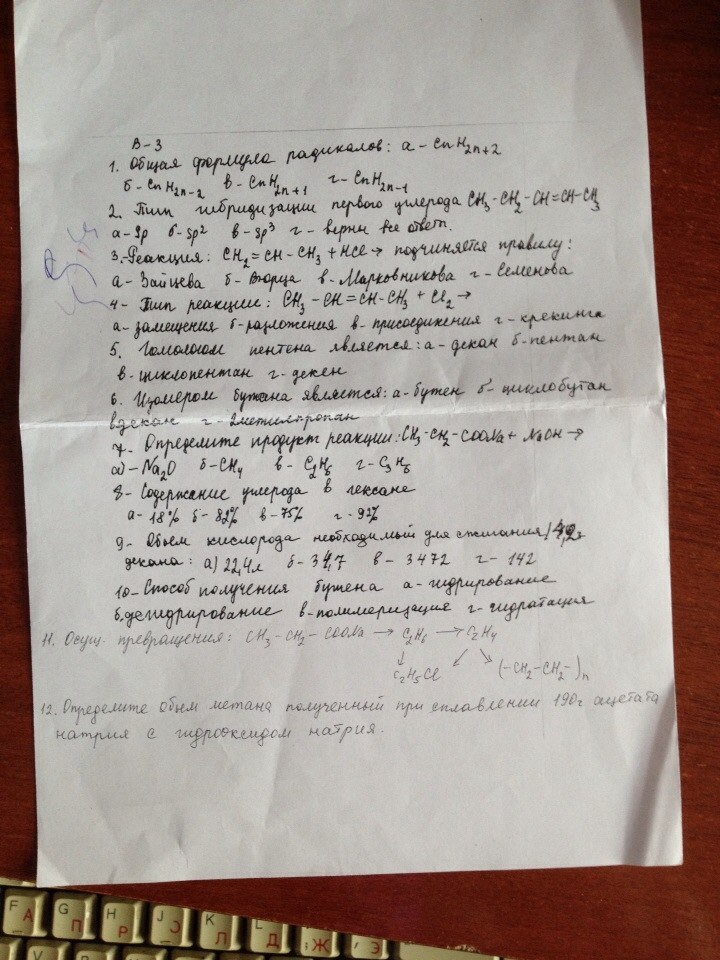 В-3
1. Общая формула радикалов: а - CnH2n+2
б - CnH2n-2 в - CnH2n+1 г - CnH2n-1
2. Тип гибридизации первого углерода CH3-CH2-CH=CH-CH3
а - Sp б - Sp² в - Sp³ г - верны все ответы.
3. Реакция: CH2=CH-CH3 + HCl → подчиняется правилу:
а - Зайцева б - Вюрца в - Марковникова г - Семенова
4 - Тип реакции: CH3-CH=CH-CH3 + Cl2 →
а - замещения б - разложения в - присоединения г - крекинга
5. Гомологом пентена является: а - декан б - пентан
в - циклопентан г - декен
6. Изомером бутана является: а - бутен б - циклобутан
в декан г - 2метилпропан
7 - Определите продукт реакции: CH3-CH2-COONa + NaOH →
а) - Na2O б - CH4 в - C2H6 г - C3H6
8 - Содержание углерода в гексане
а - 18% б - 82% в - 75% г - 92%
9 - Объем кислорода необходимый для сжигания
декана: а) 22,4л б - 34,7 в - 3472 г - 142
10 - Способ получения бутена а - гидрирование
б. дегидрирование в - полимеризация г - гидратация
11. Осущ. превращения: CH3-CH2-COONa → C2H6 → C2H4
↓ ↙ ↘
C2H5Cl (-CH2-CH2-)n
12. Определите объем метана полученный при сплавлении 190г ацетата
натрия с гидрооксидом натрия.
F А G П H Р J О K Л L Д ; Ж ' Э
V B